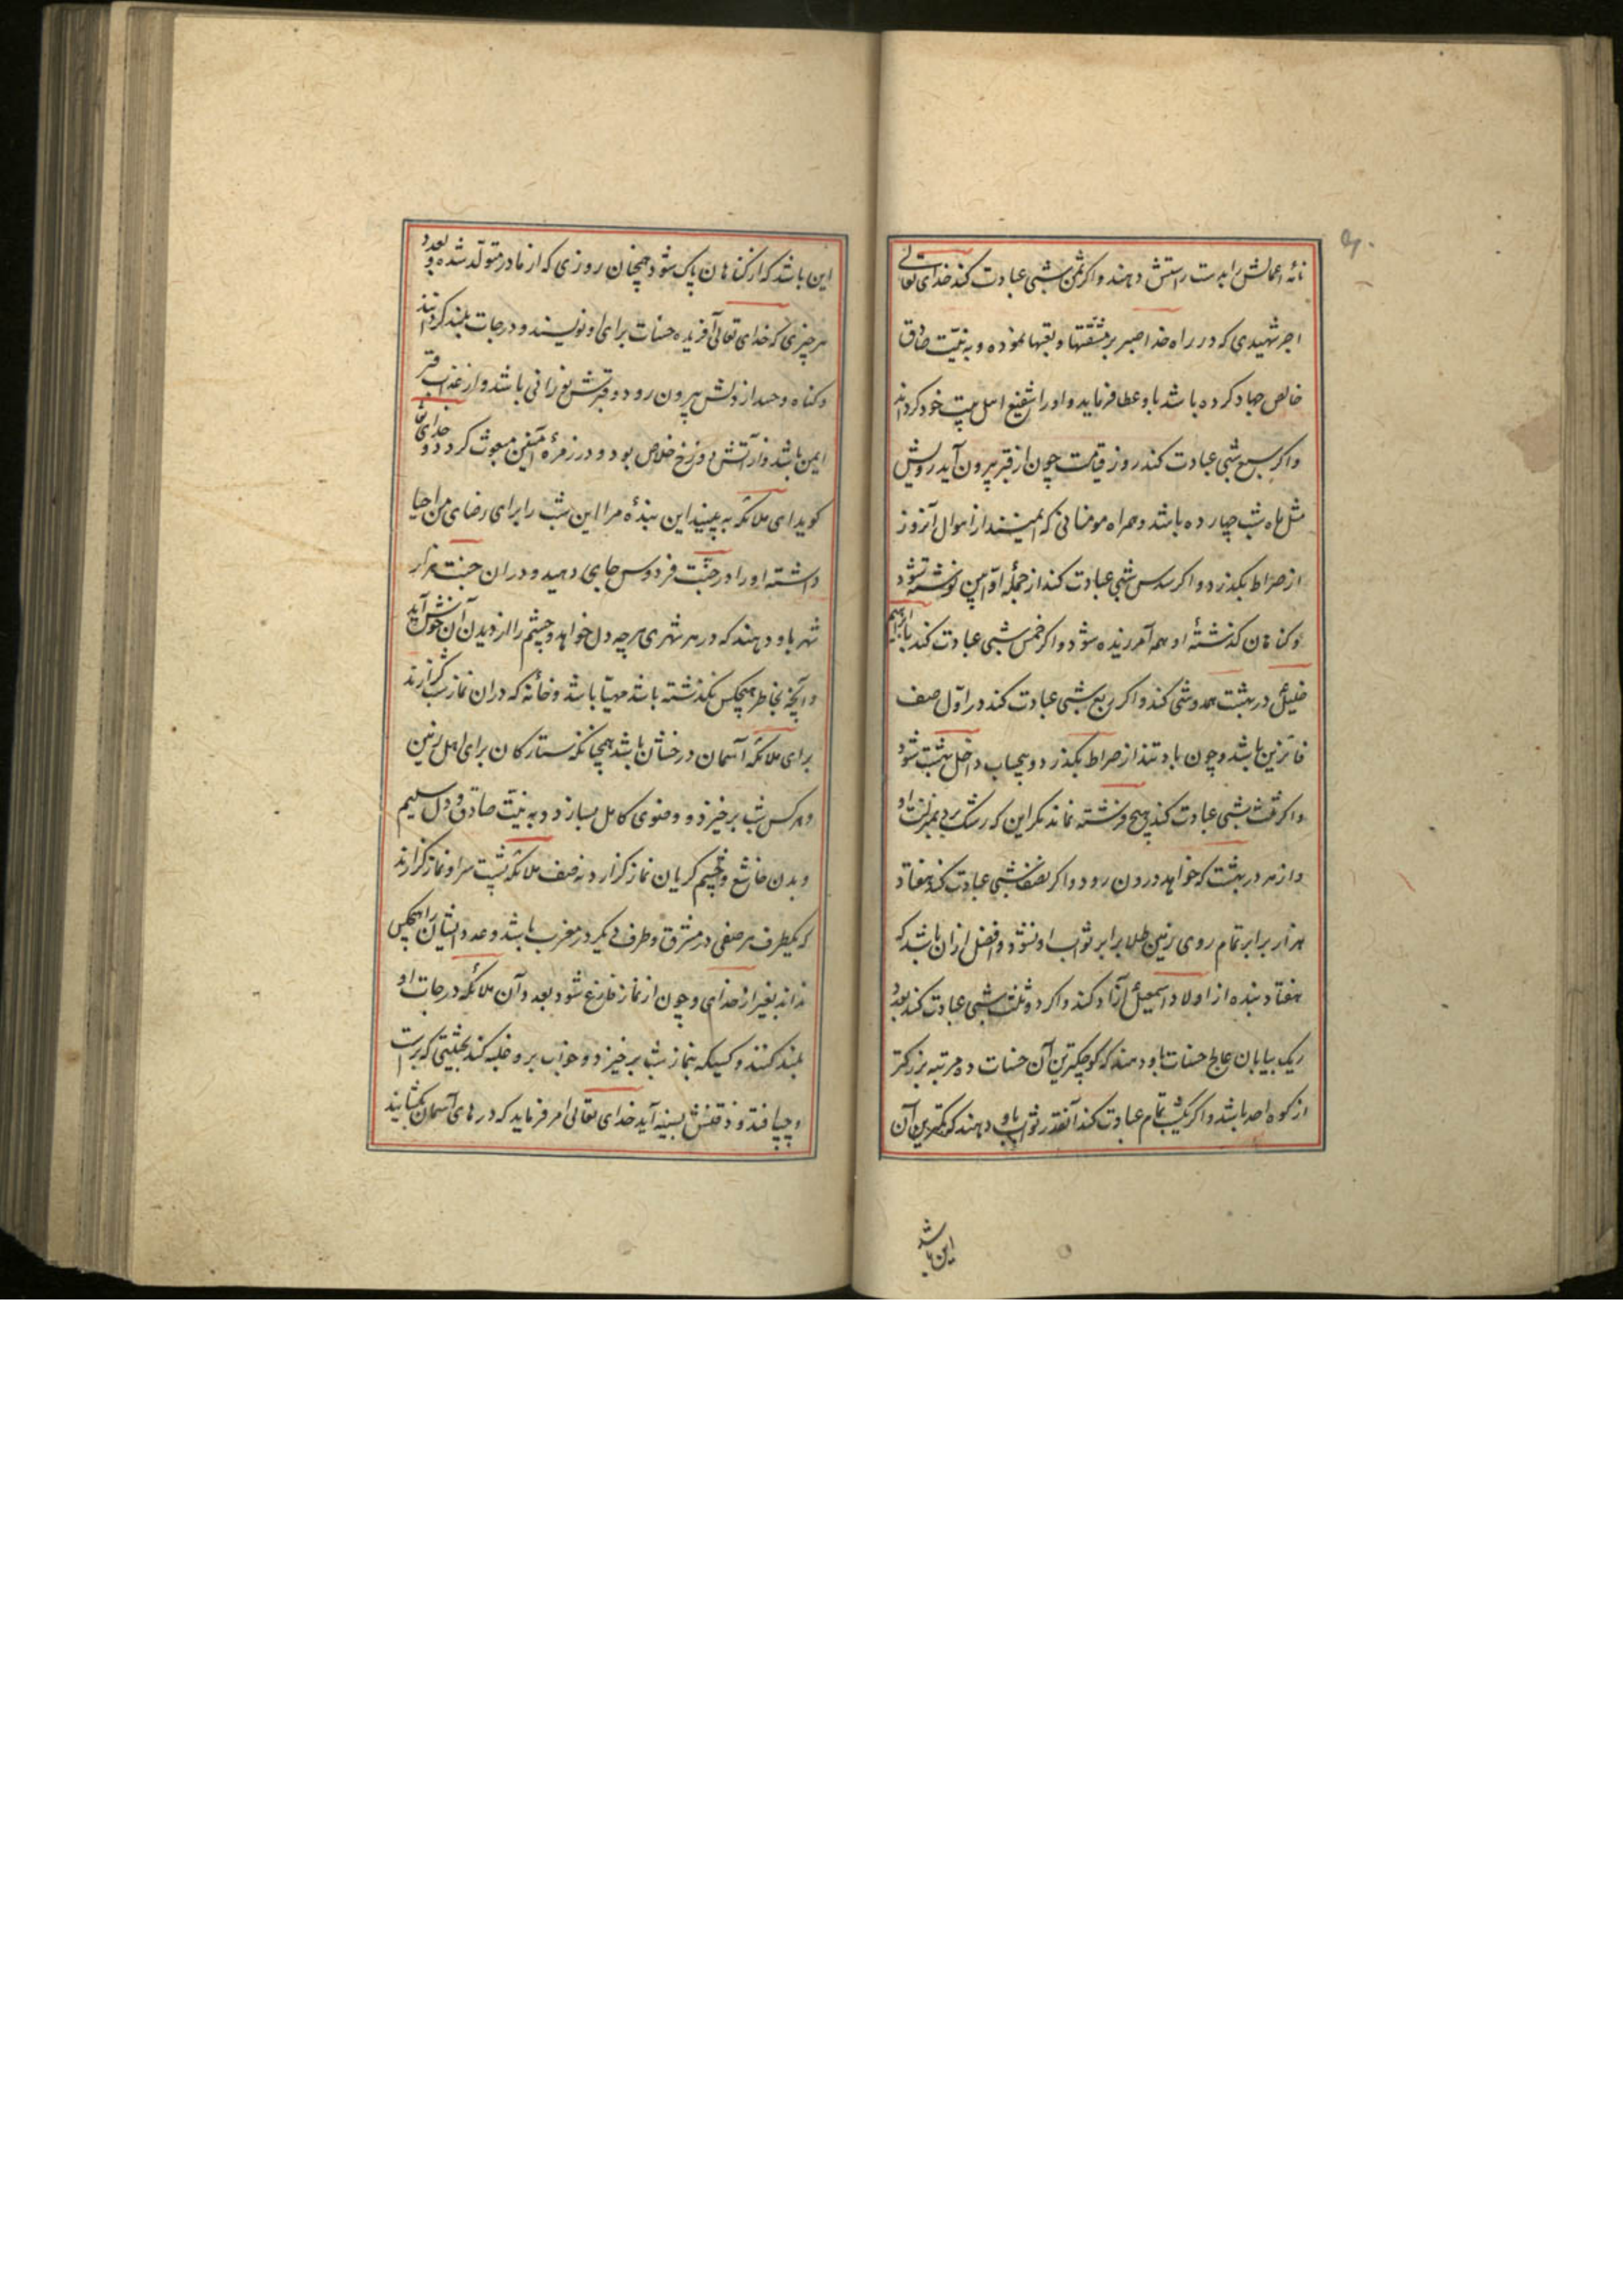 نامهٔ اعمالش را بدست راستش دهند و اکر ثمن شبی عبادت کند خدای تعالی
اجر شهیدی که در راه خدا صبر بر مشقتها و تعبها نموده و به نیّت صادق
خالص جهاد کرده باشد باو عطا فرماید و او را شفیع اهل بیت خود کرداند
واکر سبع شبی عبادت کند روز قیامت چون از قبر بیرون آید رویش
مثل ماه شب چهارده باشد و همراه مومنانی که ایمنند از اهوال آنروز
از صراط بکذرد و اکر سدس شبی عبادت کند از جملهٔ اوّابین نوشته شود
و کناهان کذشتهٔ او همه آمرزیده شود و اکر خمس شبی عبادت کند با ابراهیم
خلیل در بهشت همدوشی کند و اکر ربع شبی عبادت کند در اوّل صف
فائزین باشد و چون باد تند از صراط بکذرد و بیحساب داخل بهشت شود
و اکر ثلث شبی عبادت کند هیچ فرشته نماند مکر این که رشک برد بمنزلت او
و از هر در بهشت که خواهد درون رود و اکر نصف شبی عبادت کند هفتاد
هزار برابر تمام روی زمین طلا برابر ثواب او نشود و افضل ازان باشد که
هفتاد بنده از اولاد اسمعیل آزاد کند و اکر دو ثلث شبی عبادت کند بعدد
ریک بیابان عالج حسنات باو دهند که کوچکترین آن حسنات ده مرتبه بزرکتر
از کوه احد باشد و اکر یکشب تمام عبادت کند آنقدر ثواب باو دهند که کمترین آن
این باشد
این باشد که از کناهان پاک شود همچنان روزی که از مادر متولّد شده و بعدد
هر چیزی که خدای تعالی آفریده حسنات برای او نویسند و درجات بلند کردانند
و کناه و حسد از دلش بیرون رود و قبرش نورانی باشد و از عذاب قبر
ایمن باشد و از آتش دوزخ خلاص بود و در زمرهٔ آمنین مبعوث کردد و خدای
کوید ای ملائکه به بینید این بندهٔ مرا این شب را برای رضای من احیا
داشته او را در جنّت فردوس جای دهید و دران جنت هزار
شهر باو دهند که در هر شهری هرچه دل خواهد و چشم را از دیدن آن خوش آید
و آنچه بخاطر هیچکس نکذشته باشد مهیّا باشد و خانهٔ که دران نماز شب کزارند
برای ملائکهٔ آسمان درخشان باشد همچنانکه ستارکان برای اهل زمین
و هر کس شب برخیزد و وضوی کامل بسازد و به نیّت صادق و دل سلیم
و بدن خاشع و چشم کریان نماز کزارد نه صف ملائکه پشت سر او نماز کزارند
که یکطرف هر صفی در مشرق و طرف دیکر در مغرب باشد و عدد ایشان را هیچکس
نداند بغیر از خدای و چون از نماز فارغ شود بعدد آن ملائکه درجات او
بلند کنند و کسیکه بنماز شب برخیزد و خواب برو غلبه کند بحیثیتی که براست
و چپ افتد و ذقنش بسینه آید خدای تعالی امر فرماید که درهای آسمان بکشایند